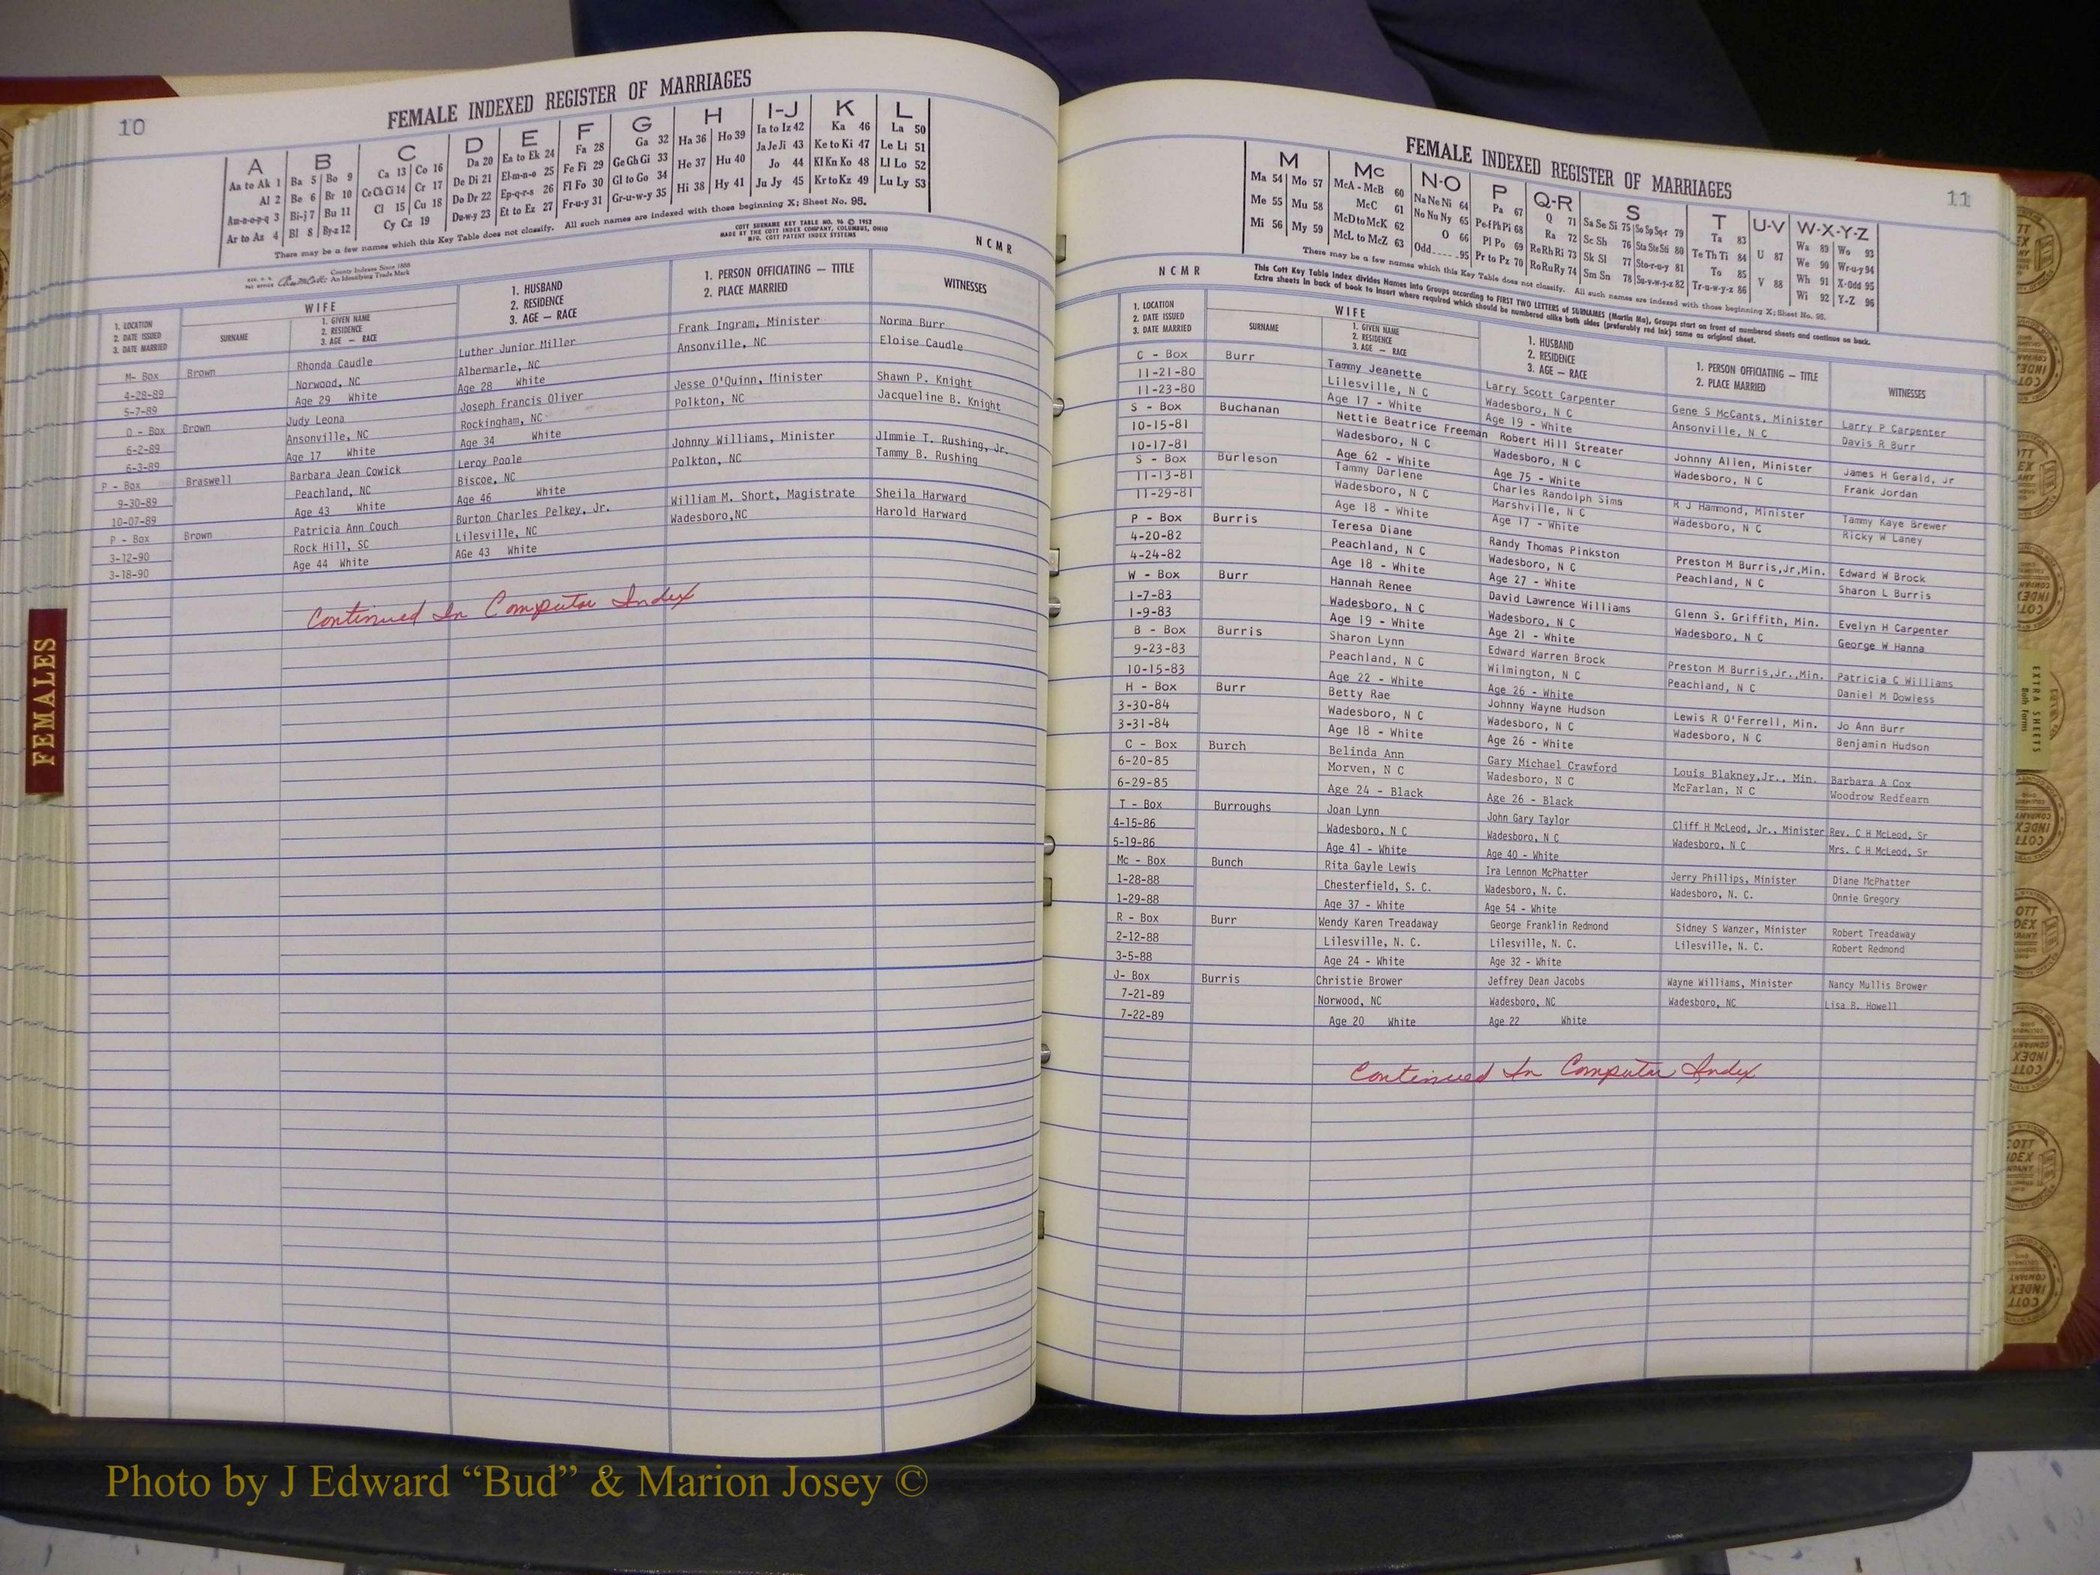 10
FEMALE INDEXED REGISTER OF MARRIAGES
A B C D E F G H I-J K L
Aa to Ak 1 Ba 5 Bo 9 Ca 13 Co 16 Da 20 Ea to Ek 24 Fa 28 Ga 32 Ha 36 Ho 39 Ia to Iz 42 Ka 46 La 50
Al 2 Be 6 Br 10 Ce Ch Ci 14 Cr 17 De Di 21 El-m-n-o 25 Fe Fi 29 Ge Gh Gi 33 He 37 Hu 40 Ja Je Ji 43 Ke to Ki 47 Le Li 51
Am-n-o-p-q 3 Bi-j 7 Bu 11 Cl 15 Cu 18 Do Dr 22 Ep-q-r-s 26 Fl Fo 30 Gl to Go 34 Hi 38 Hy 41 Jo 44 Kl Kn Ko 48 Ll Lo 52
Ar to Az 4 Bl 8 By-z 12 Cy Cz 19 Du-w-y 23 Et to Ez 27 Fr-u-y 31 Gr-u-w-y 35 Ju Jy 45 Kr to Kz 49 Lu Ly 53
There may be a few names which this Key Table does not classify. All such names are indexed with those beginning X; Sheet No. 95.
COTT SURNAME KEY TABLE NO. 96 © 1952
MADE BY THE COTT INDEX COMPANY, COLUMBUS, OHIO
MFG. COTT PATENT INDEX SYSTEMS
NCMR
County Indexes Since 1888
An Identifying Trade Mark
1. LOCATION
2. DATE ISSUED
3. DATE MARRIED
WIFE
SURNAME
1. GIVEN NAME
2. RESIDENCE
3. AGE — RACE
1. HUSBAND
2. RESIDENCE
3. AGE — RACE
1. PERSON OFFICIATING — TITLE
2. PLACE MARRIED
WITNESSES
M- Box Brown Rhonda Caudle Luther Junior Miller Frank Ingram, Minister Norma Burr
4-28-89 Norwood, NC Albermarle, NC Ansonville, NC Eloise Caudle
5-7-89 Age 29 White Age 28 White
O - Box Brown Judy Leona Joseph Francis Oliver Jesse O'Quinn, Minister Shawn P. Knight
6-2-89 Ansonville, NC Rockingham, NC Polkton, NC Jacqueline B. Knight
6-3-89 Age 17 White Age 34 White
P - Box Braswell Barbara Jean Cowick Leroy Poole Johnny Williams, Minister JImmie T. Rushing, Jr.
9-30-89 Peachland, NC Biscoe, NC Polkton, NC Tammy B. Rushing
10-07-89 Age 43 White Age 46 White
P - Box Brown Patricia Ann Couch Burton Charles Pelkey, Jr. William M. Short, Magistrate Sheila Harward
3-12-90 Rock Hill, SC Lilesville, NC Wadesboro,NC Harold Harward
3-18-90 Age 44 White AGe 43 White
Continued In Computer Index
FEMALES
FEMALE INDEXED REGISTER OF MARRIAGES
11
M Mc N-O P Q-R S T U-V W-X-Y-Z
Ma 54 Mo 57 McA - McB 60 Na Ne Ni 64 Pa 67 Q 71 Sa Se Si 75 So Sp Sq-r 79 Ta 83 U 87 Wa 89 Wo 93
Me 55 Mu 58 McC 61 No Nu Ny 65 Pe Pf Ph Pi 68 Ra 72 Sc Sh 76 Sta Ste Sti 80 Te Th Ti 84 V 88 We 90 Wr-u-y 94
Mi 56 My 59 McD to McK 62 O 66 Pl Po 69 Re Rh Ri 73 Sk Sl 77 Sto-r-u-y 81 To 85 Wh 91 X-Odd 95
McL to McZ 63 Odd 95 Pr to Pz 70 Ro Ru Ry 74 Sm Sn 78 Su-v-w-y-z 82 Tr-u-w-y-z 86 Wi 92 Y-Z 96
There may be a few names which this Key Table does not classify. All such names are indexed with those beginning X; Sheet No. 95.
NCMR
This Cott Key Table Index divides Names into Groups according to FIRST TWO LETTERS of SURNAMES (Martin Ma), Groups start on front of numbered sheets and continue on back.
Extra sheets in back of book to insert where required which should be numbered alike both sides (preferably red ink) same as original sheet.
1. LOCATION
2. DATE ISSUED
3. DATE MARRIED
WIFE
SURNAME
1. GIVEN NAME
2. RESIDENCE
3. AGE — RACE
1. HUSBAND
2. RESIDENCE
3. AGE — RACE
1. PERSON OFFICIATING — TITLE
2. PLACE MARRIED
WITNESSES
C - Box Burr Tammy Jeanette Larry Scott Carpenter Gene S McCants, Minister Larry P Carpenter
11-21-80 Lilesville, N C Wadesboro, N C Ansonville, N C Davis R Burr
11-23-80 Age 17 - White Age 19 - White
S - Box Buchanan Nettie Beatrice Freeman Robert Hill Streater Johnny Allen, Minister James H Gerald, Jr
10-15-81 Wadesboro, N C Wadesboro, N C Wadesboro, N C Frank Jordan
10-17-81 Age 62 - White Age 75 - White
S - Box Burleson Tammy Darlene Charles Randolph Sims R J Hammond, Minister Tammy Kaye Brewer
11-13-81 Wadesboro, N C Marshville, N C Wadesboro, N C Ricky W Laney
11-29-81 Age 18 - White Age 17 - White
P - Box Burris Teresa Diane Randy Thomas Pinkston Preston M Burris,Jr,Min. Edward W Brock
4-20-82 Peachland, N C Wadesboro, N C Peachland, N C Sharon L Burris
4-24-82 Age 18 - White Age 27 - White
W - Box Burr Hannah Renee David Lawrence Williams Glenn S. Griffith, Min. Evelyn H Carpenter
1-7-83 Wadesboro, N C Wadesboro, N C Wadesboro, N C George W Hanna
1-9-83 Age 19 - White Age 21 - White
B - Box Burris Sharon Lynn Edward Warren Brock Preston M Burris,Jr.,Min. Patricia C Williams
9-23-83 Peachland, N C Wilmington, N C Peachland, N C Daniel M Dowless
10-15-83 Age 22 - White Age 26 - White
H - Box Burr Betty Rae Johnny Wayne Hudson Lewis R O'Ferrell, Min. Jo Ann Burr
3-30-84 Wadesboro, N C Wadesboro, N C Wadesboro, N C Benjamin Hudson
3-31-84 Age 18 - White Age 26 - White
C - Box Burch Belinda Ann Gary Michael Crawford Louis Blakney,Jr., Min. Barbara A Cox
6-20-85 Morven, N C Wadesboro, N C McFarlan, N C Woodrow Redfearn
6-29-85 Age 24 - Black Age 26 - Black
T - Box Burroughs Joan Lynn John Gary Taylor Cliff H McLeod, Jr., Minister Rev. C H McLeod, Sr
4-15-86 Wadesboro, N C Wadesboro, N C Wadesboro, N C Mrs. C H McLeod, Sr
5-19-86 Age 41 - White Age 40 - White
Mc - Box Bunch Rita Gayle Lewis Ira Lennon McPhatter Jerry Phillips, Minister Diane McPhatter
1-28-88 Chesterfield, S. C. Wadesboro, N. C. Wadesboro, N. C. Onnie Gregory
1-29-88 Age 37 - White Age 54 - White
R - Box Burr Wendy Karen Treadaway George Franklin Redmond Sidney S Wanzer, Minister Robert Treadaway
2-12-88 Lilesville, N. C. Lilesville, N. C. Lilesville, N. C. Robert Redmond
3-5-88 Age 24 - White Age 32 - White
J- Box Burris Christie Brower Jeffrey Dean Jacobs Wayne Williams, Minister Nancy Mullis Brower
7-21-89 Norwood, NC Wadesboro, NC Wadesboro, NC Lisa B. Howell
7-22-89 Age 20 White Age 22 White
Continued In Computer Index
EXTRA SHEETS
Both Forms
Photo by J Edward “Bud” & Marion Josey ©